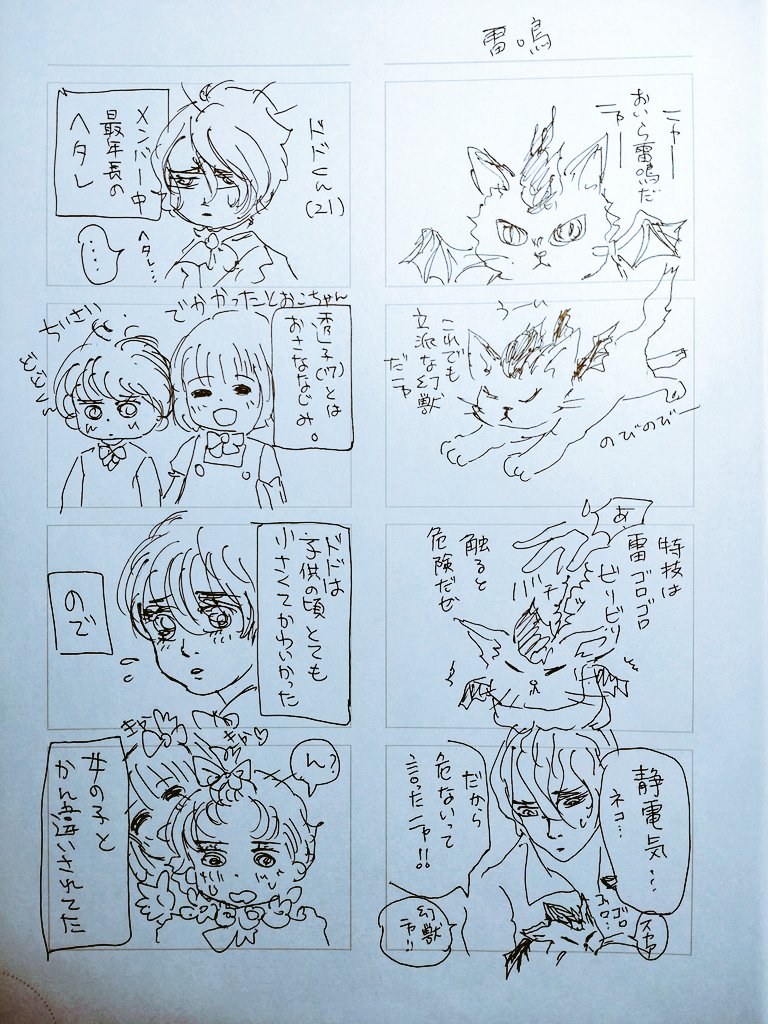 雷鳴
ニャー
ニャー
おいら雷鳴だ
うーい
これでも
立派な幻獣
だニャ
のびのびー
特技は
雷ゴロゴロ
ビリビリ
触ると
危険だぜ
あ
バチッ
静電気…
ネコ…
だから
危ないって
言ったニャ!!
幻獣
ニャ!!
ゴロゴロ…
スヤァ
ドドくん(21)
メンバー中
最年長の
ヘタレ
ヘタレ…
……
でかかったとおこちゃん
ちいさい
どどくん
(17)とは
おさななじみ。
ドドは
子供の頃とても
小さくてかわいかった
ので
ん?
女の子と
かん違いされてた